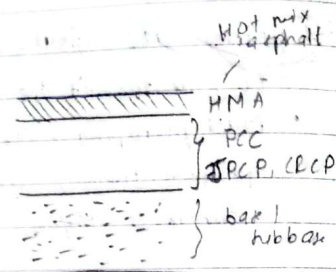 Hot mix
asphalt
HMA
PCC
JPCP, CRCP
base /
subbase